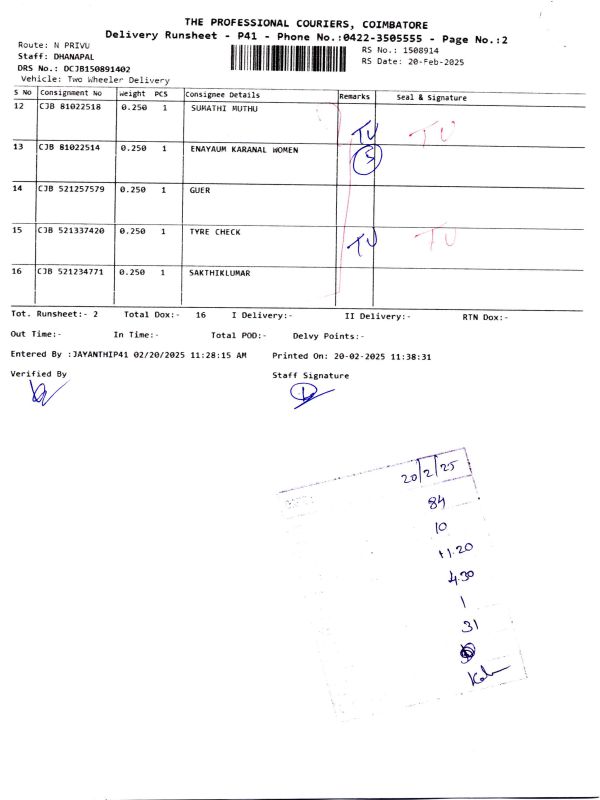 THE PROFESSIONAL COURIERS, COIMBATORE
Delivery Runsheet - P41 - Phone No.:0422-3505555 - Page No.:2
Route: N PRIVU
RS No.: 1508914
Staff: DHANAPAL
RS Date: 20-Feb-2025
DRS No.: DCJB150891402
Vehicle: Two Wheeler Delivery
S No Consignment No Weight PCS Consignee Details Remarks Seal & Signature
12 CJB 81022518 0.250 1 SUMATHI MUTHU
TV TV
13 CJB 81022514 0.250 1 ENAYAUM KARANAL WOMEN
5
14 CJB 521257579 0.250 1 GUER
15 CJB 521337420 0.250 1 TYRE CHECK
TV TV
16 CJB 521234771 0.250 1 SAKTHIKLUMAR
Tot. Runsheet:- 2 Total Dox:- 16 I Delivery:- II Delivery:- RTN Dox:-
Out Time:- In Time:- Total POD:- Delvy Points:-
Entered By :JAYANTHIP41 02/20/2025 11:28:15 AM Printed On: 20-02-2025 11:38:31
Verified By Staff Signature
20/2/25
84
10
11.20
4.30
1
31